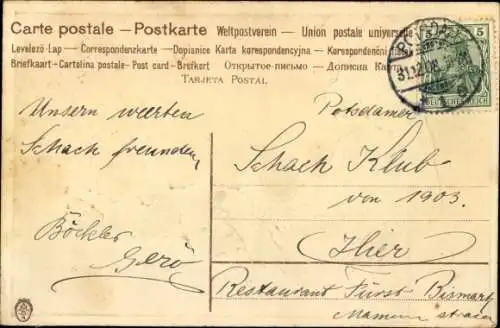 Carte postale – Postkarte Weltpostverein – Union postale universelle
Levelezö-Lap — Correspondenzkarte – Dopisnice Karta korespondencyjna – Korespondenční lístek
Briefkaart-Cartolina postale-Post card-Brefkort Открытое-письмо – Дописна Карта
Tarjeta Postal
5 5
31.12.08
DEUTSCHES REICH
Unsern weerten
Schack freunden,
Böckler
Gerö
Potsdamer
Schach Klub
von 1903.
Hier
Restaurant Fürst Bismark